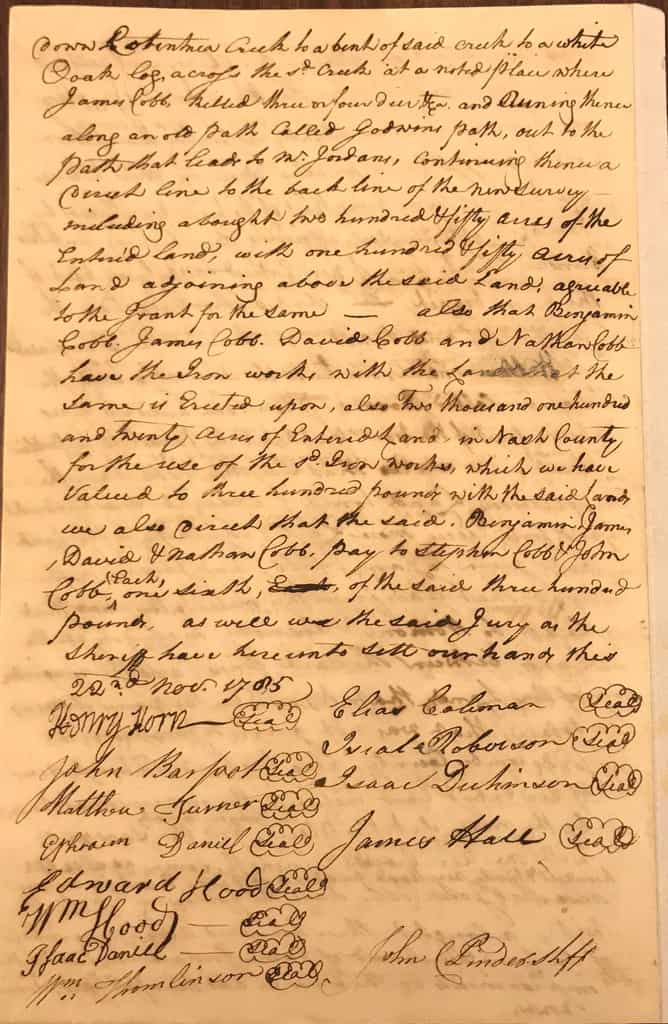 Down Cotentnea Creek to a bent of said creek to a white
Oak log, across the sd. Creek at a noted place where
James Cobb killed three or four deer &c. and Runing thence
along an old path Called Godwins path, out to the
path that leads to Mr. Jordans, continuing thence a
Direct line to the back line of the new survey —
including abought two hundred & fifty acres of the
Enter'd land, with one hundred & fifty acres of
Land adjoining above the said Land, agreable
to the Grant for the same — also that Benjamin
Cobb. James Cobb. David Cobb and Nathan Cobb
have the Iron works with the Land that the
same is Erected upon, also Two thousand one hundred
and twenty acres of Entered Land, in Nash County
for the use of the sd. Iron works, which we have
Valued to three hundred pounds with the said Lands
we also Direct that the said. Benjamin, James
, David & Nathan Cobb. pay to Stephen Cobb & John
Cobb, Each, one sixth, of the said three hundred
pounds, as well we the said Jury as the
Sheriff have hereunto sett our hands this
22nd Nov. 1785
Henry Horn — Seal Elias Coleman Seal
John Barfoot Seal Roberson Seal
Matthew Turner Seal Isaac Dickinson Seal
Ephraim Daniel Seal James Hall Seal
Edward Hood Seal
Wm Hood — Seal
Isaac Daniell — Seal
Wm. Thomlinson Seal John Pinder Shff